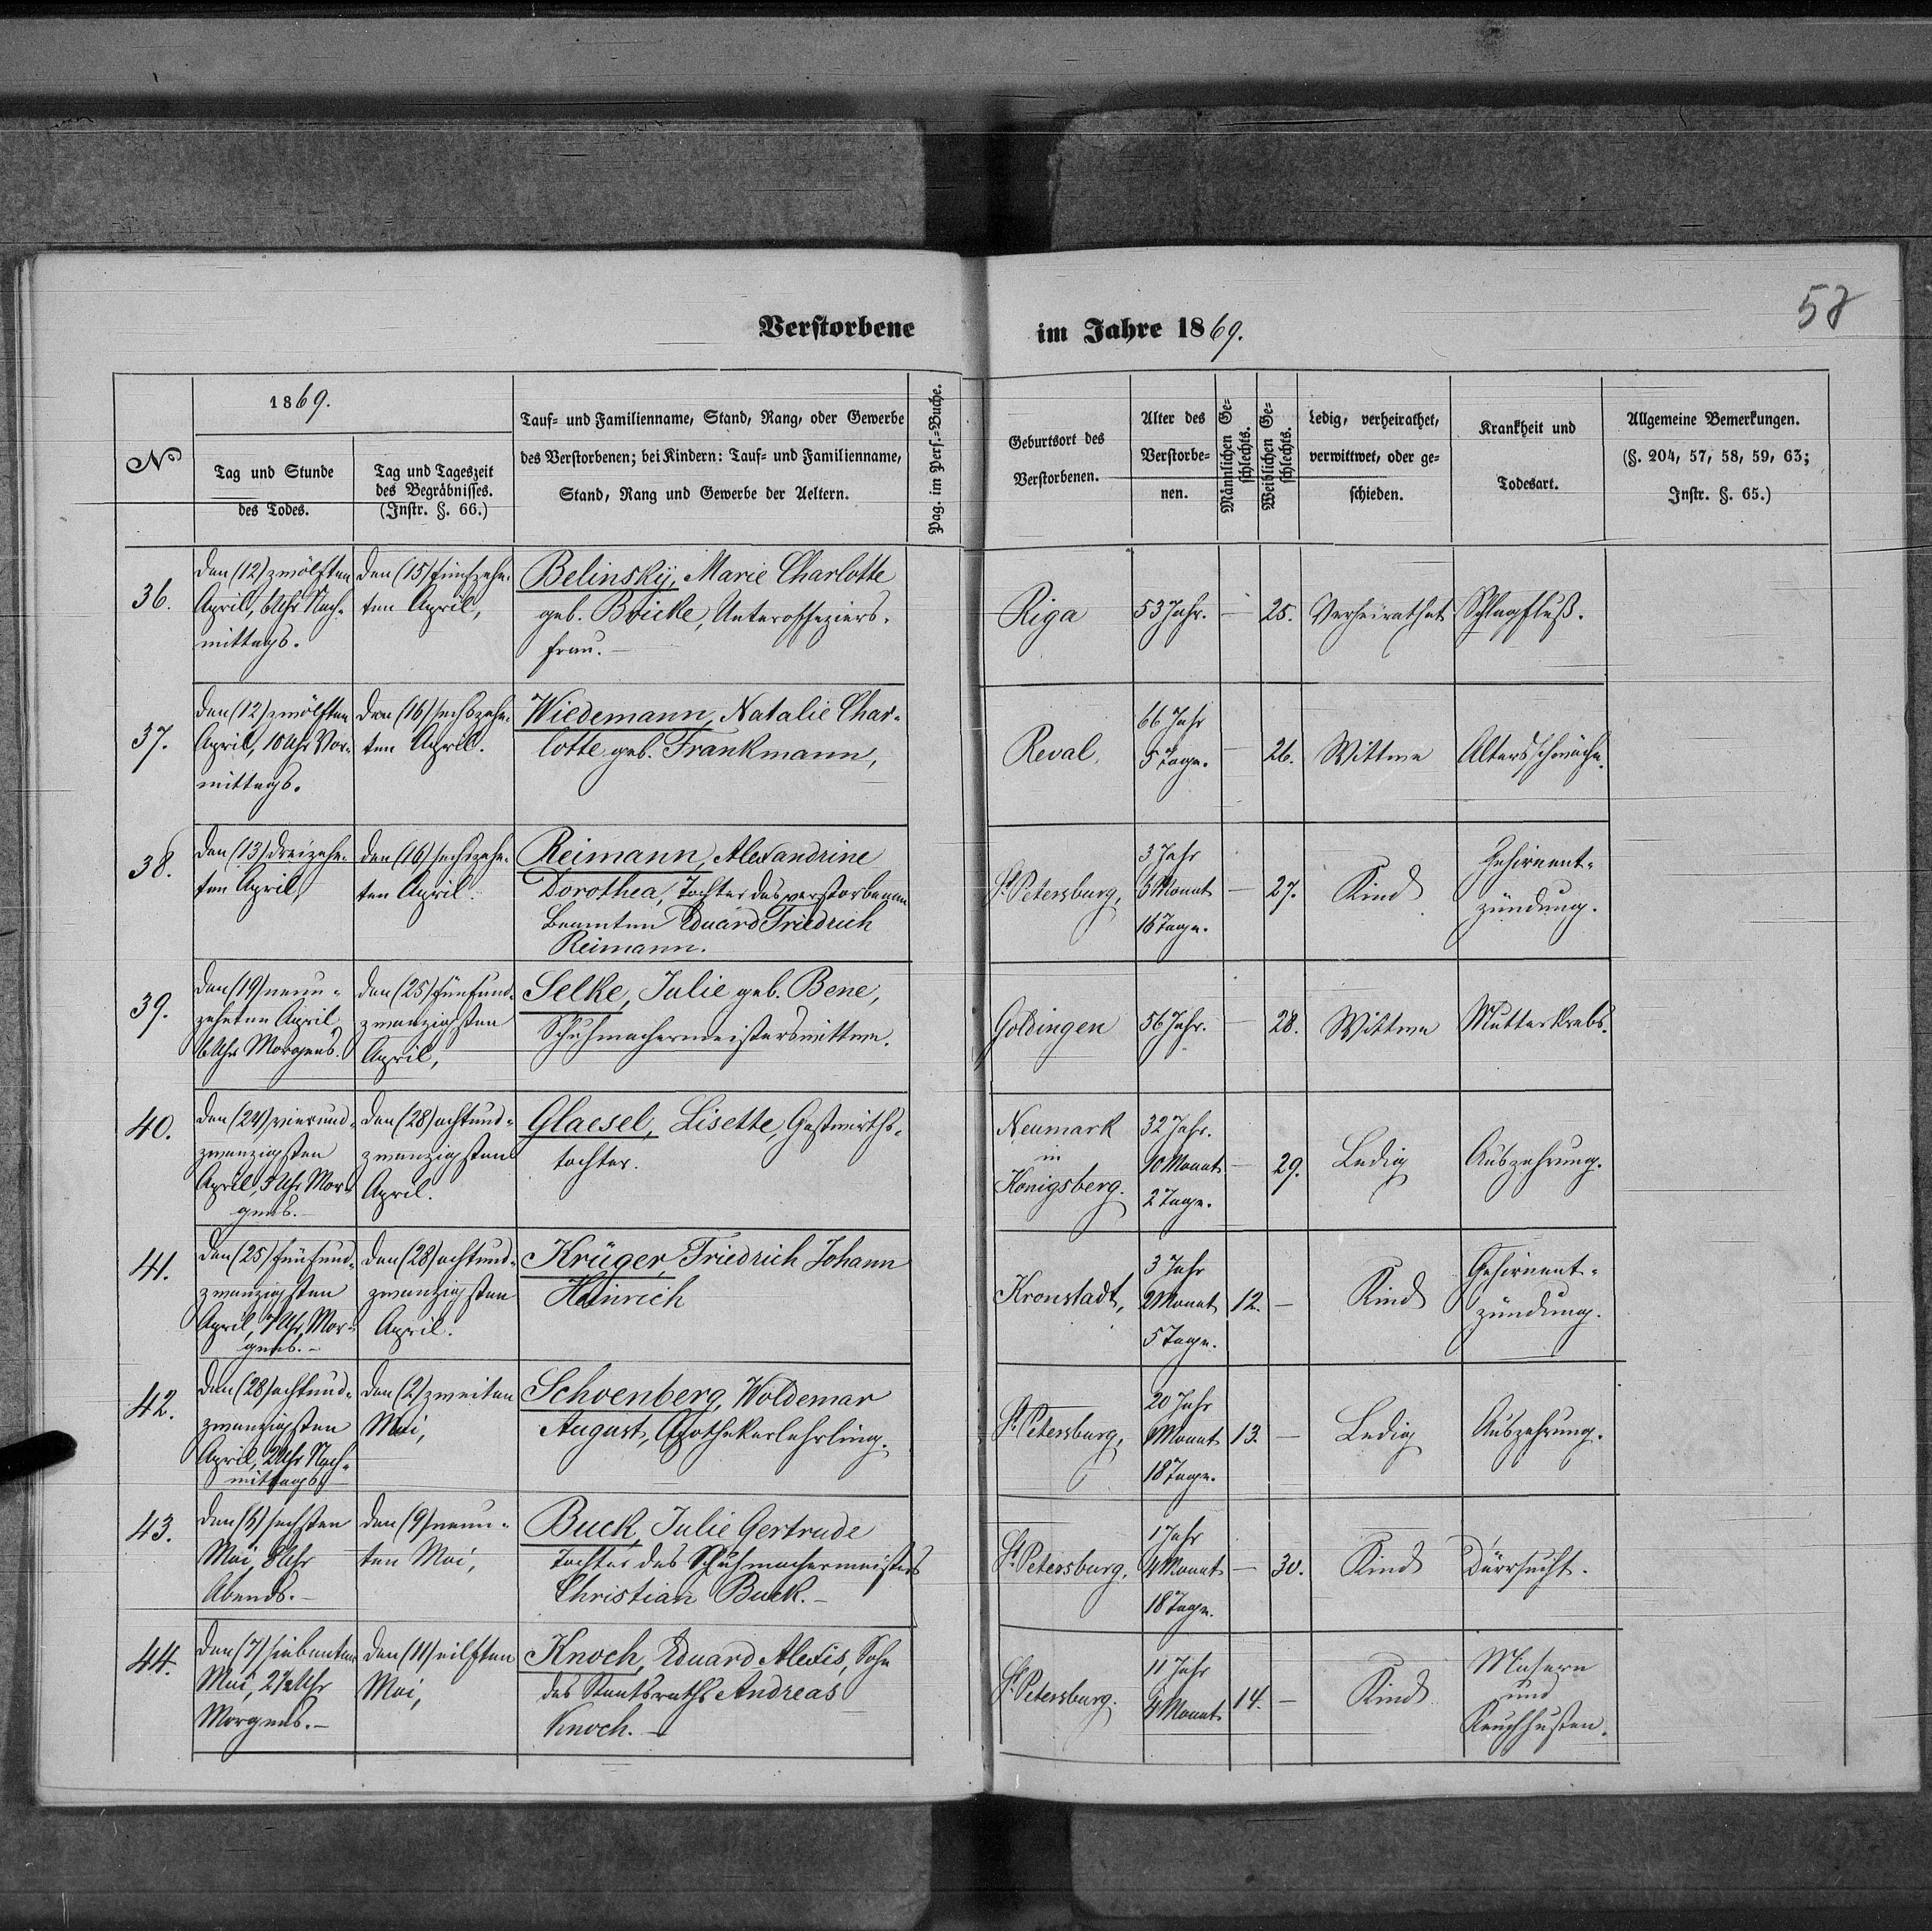 58
Verstorbene im Jahre 1869.
№
1869.
Tag und Stunde
des Todes.
Tag und Tageszeit
des Begräbnisses.
(Instr. §. 66.)
Tauf- und Familienname, Stand, Rang, oder Gewerbe
des Verstorbenen; bei Kindern: Tauf- und Familienname,
Stand, Rang und Gewerbe der Aeltern.
Pag. im Pers.-Buche.
Geburtsort des
Verstorbenen.
Alter des
Verstorbe-
nen.
Männlichen Ge-
schlechts.
Weiblichen Ge-
schlechts.
Ledig, verheirathet,
verwittwet, oder ge-
schieden.
Krankheit und
Todesart.
Allgemeine Bemerkungen.
(§. 204, 57, 58, 59, 63;
Instr. §. 65.)
36.
den (12) zwölften
April, 6 Uhr Nach-
mittags.
den (15) fünfzehn-
ten April,
Belinskÿ, Marie Charlotte
geb. Bricke, Unteroffeziers-
frau. –
Riga
53 Jahr.
–
25.
Verheirathet
Schlagfluß.
37.
den (12) zwölften
April, 10 Uhr Vor-
mittags.
den (16) sechszehn-
ten April.
Wiedemann, Natalie Char-
lotte geb. Frankmann,
Reval,
66 Jahr
5 Tage.
–
26.
Wittwe
Altersschwäche.
38.
den (13) dreizehn-
ten April,
den (16) sechszehn-
ten April.
Reimann, Alexandrine
Dorothea, Tochter des verstorbenen
Beamten Eduard Friedrich
Reimann.
St. Petersburg,
3 Jahr
6 Monat
16 Tage.
–
27.
Kind
Gehirnent-
zündung.
39.
den (19) neun-
zehnten April
6 Uhr Morgens.
den (25) fünfund-
zwanzigsten
April,
Selke, Julie geb. Bene,
Schuhmachermeisterswittwe.
Goldingen
56 Jahr.
–
28.
Wittwe
Mutterkrebs.
40.
den (24) vierund-
zwanzigsten
April, 5 Uhr Mor-
gens. –
den (28) achtund-
zwanzigsten
April.
Glaesel, Lisette, Gastwirths-
tochter.
Neumark
in
Königsberg.
32 Jahr.
10 Monat
2 Tage.
–
29.
Ledig
Auszehrung.
41.
den (25) fünfund-
zwanzigsten
April, 7 Uhr Mor-
gens. –
den (28) achtund-
zwanzigsten
April.
Krüger, Friedrich Johann
Heinrich
Kronstadt,
3 Jahr
2 Monat
5 Tage.
12.
–
Kind
Gehirnent-
zündung.
42.
den (28) achtund-
zwanzigsten
April, 2 Uhr Nach-
mittags –
den (2) zweiten
Mai,
Schoenberg, Woldemar
August, Apothekerlehrling.
St. Petersburg,
20 Jahr
Monat
18 Tage.
13.
–
Ledig
Auszehrung.
43.
den (6) sechsten
Mai, 8 Uhr
Abends. –
den (9) neun-
ten Mai,
Buck, Julie Gertrude
Tochter des Schuhmachermeisters
Christian Buck. –
St. Petersburg,
1 Jahr
4 Monat
18 Tage.
–
30.
Kind
Dürrsucht.
44.
den (7) siebenten
Mai, 2½ Uhr
Morgens. –
den (11) eilften
Mai,
Knoch, Eduard Alexis, Sohn
des Staatsraths Andreas
Knoch. –
St. Petersburg.
11 Jahr
4 Monat
14.
–
Kind
Masern
und
Keuchhusten.